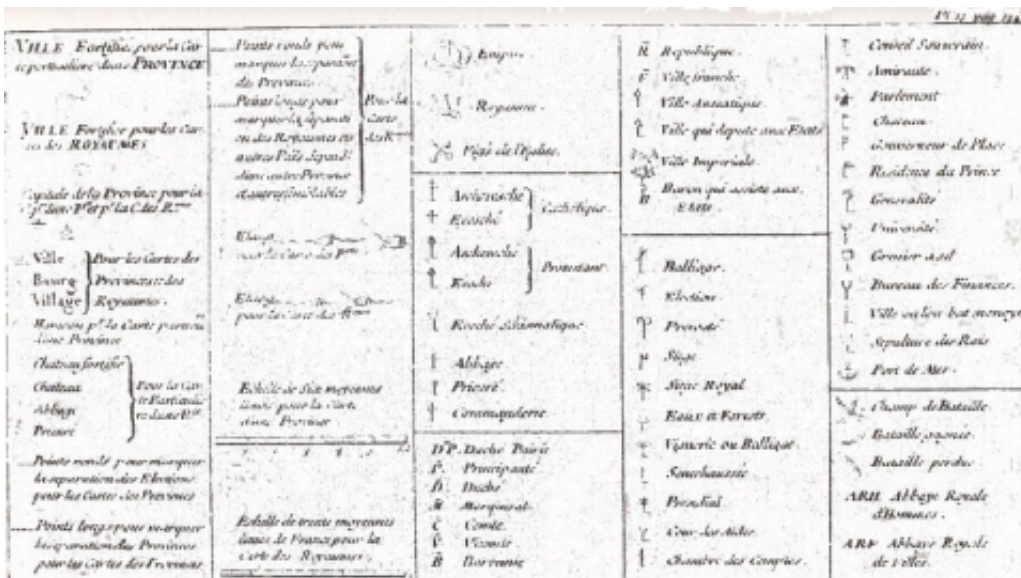 VILLE Fortifiée pour la Car
te particuliere d'une PROVINCE
VILLE Fortifiée pour les Car
tes des ROYAUMES
Capitale de la Province pour la
Ville
Bourg
Village
Pour les Cartes des
Provinces et des
Royaumes.
d'une Province
Chateau fortifié
Chateau
Abbaye
Prieuré
Pour la Car
te Particulie
re d'une
Points ronds pour marquer
la separation des Elections
pour les Cartes des Provinces
Points longs pour marquer
la separation des Provinces
pour les Cartes des Provinces
Points ronds pour
marquer la separation
de Province.
Points longs pour
marquer la separati
on des Royaumes ou
autres Païs
d'une autre Province
et autres semblables
Pour la
Carte
des
pour la Carte des
pour la Carte des
Echelle de Six moyennes
lieues pour la Carte
d'une Province
Echelle de trente moyennes
lieues de France pour la
Carte des Royaumes.
Empire
Royaume.
de l'Eglise.
Archevesché
Evesché
Catholique.
Archevesché
Evesché
Protestant
Evesché Schismatique.
Abbaye
Prieuré
Commanderie.
DP. Duché Pairie
Principauté
Duché
Marquisat
Comté
Vicomté
Baronnie
Republique.
Ville franche
Ville Anseatique.
Ville qui depute aux Etats
Ville Imperiale
Baron qui assiste aux
Etats
Balliage
Election
Prevosté
Siege
Siege Royal
Eaux et Forests
Viguerie ou Balliage.
Senechaussée
Presidial
Cour des Aides
Chambre des Comptes.
Conseil Souverain.
Amirauté.
Parlement
Chateau.
Gouverneur de Place
Residence du Prince
Generalité
Université.
Grenier à sel
Bureau des Finances.
Ville ou l'on bat monoye
Sepulture des Rois
Port de Mer.
Champ de Bataille
Bataille gagnée.
Bataille perdue
ARH Abbaye Royale
d'Hommes.
ARF Abbaye Royale
de Filles.